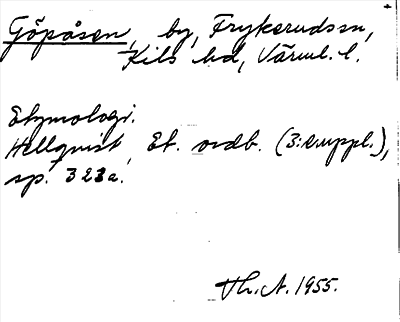 Göpåsen, by, Frykerudssn,
Kils hd, Värml. l.
Etymologi.
Hellquist, Et. ordb. (3:e uppl.),
sp. 323a.
Th. A. 1955.